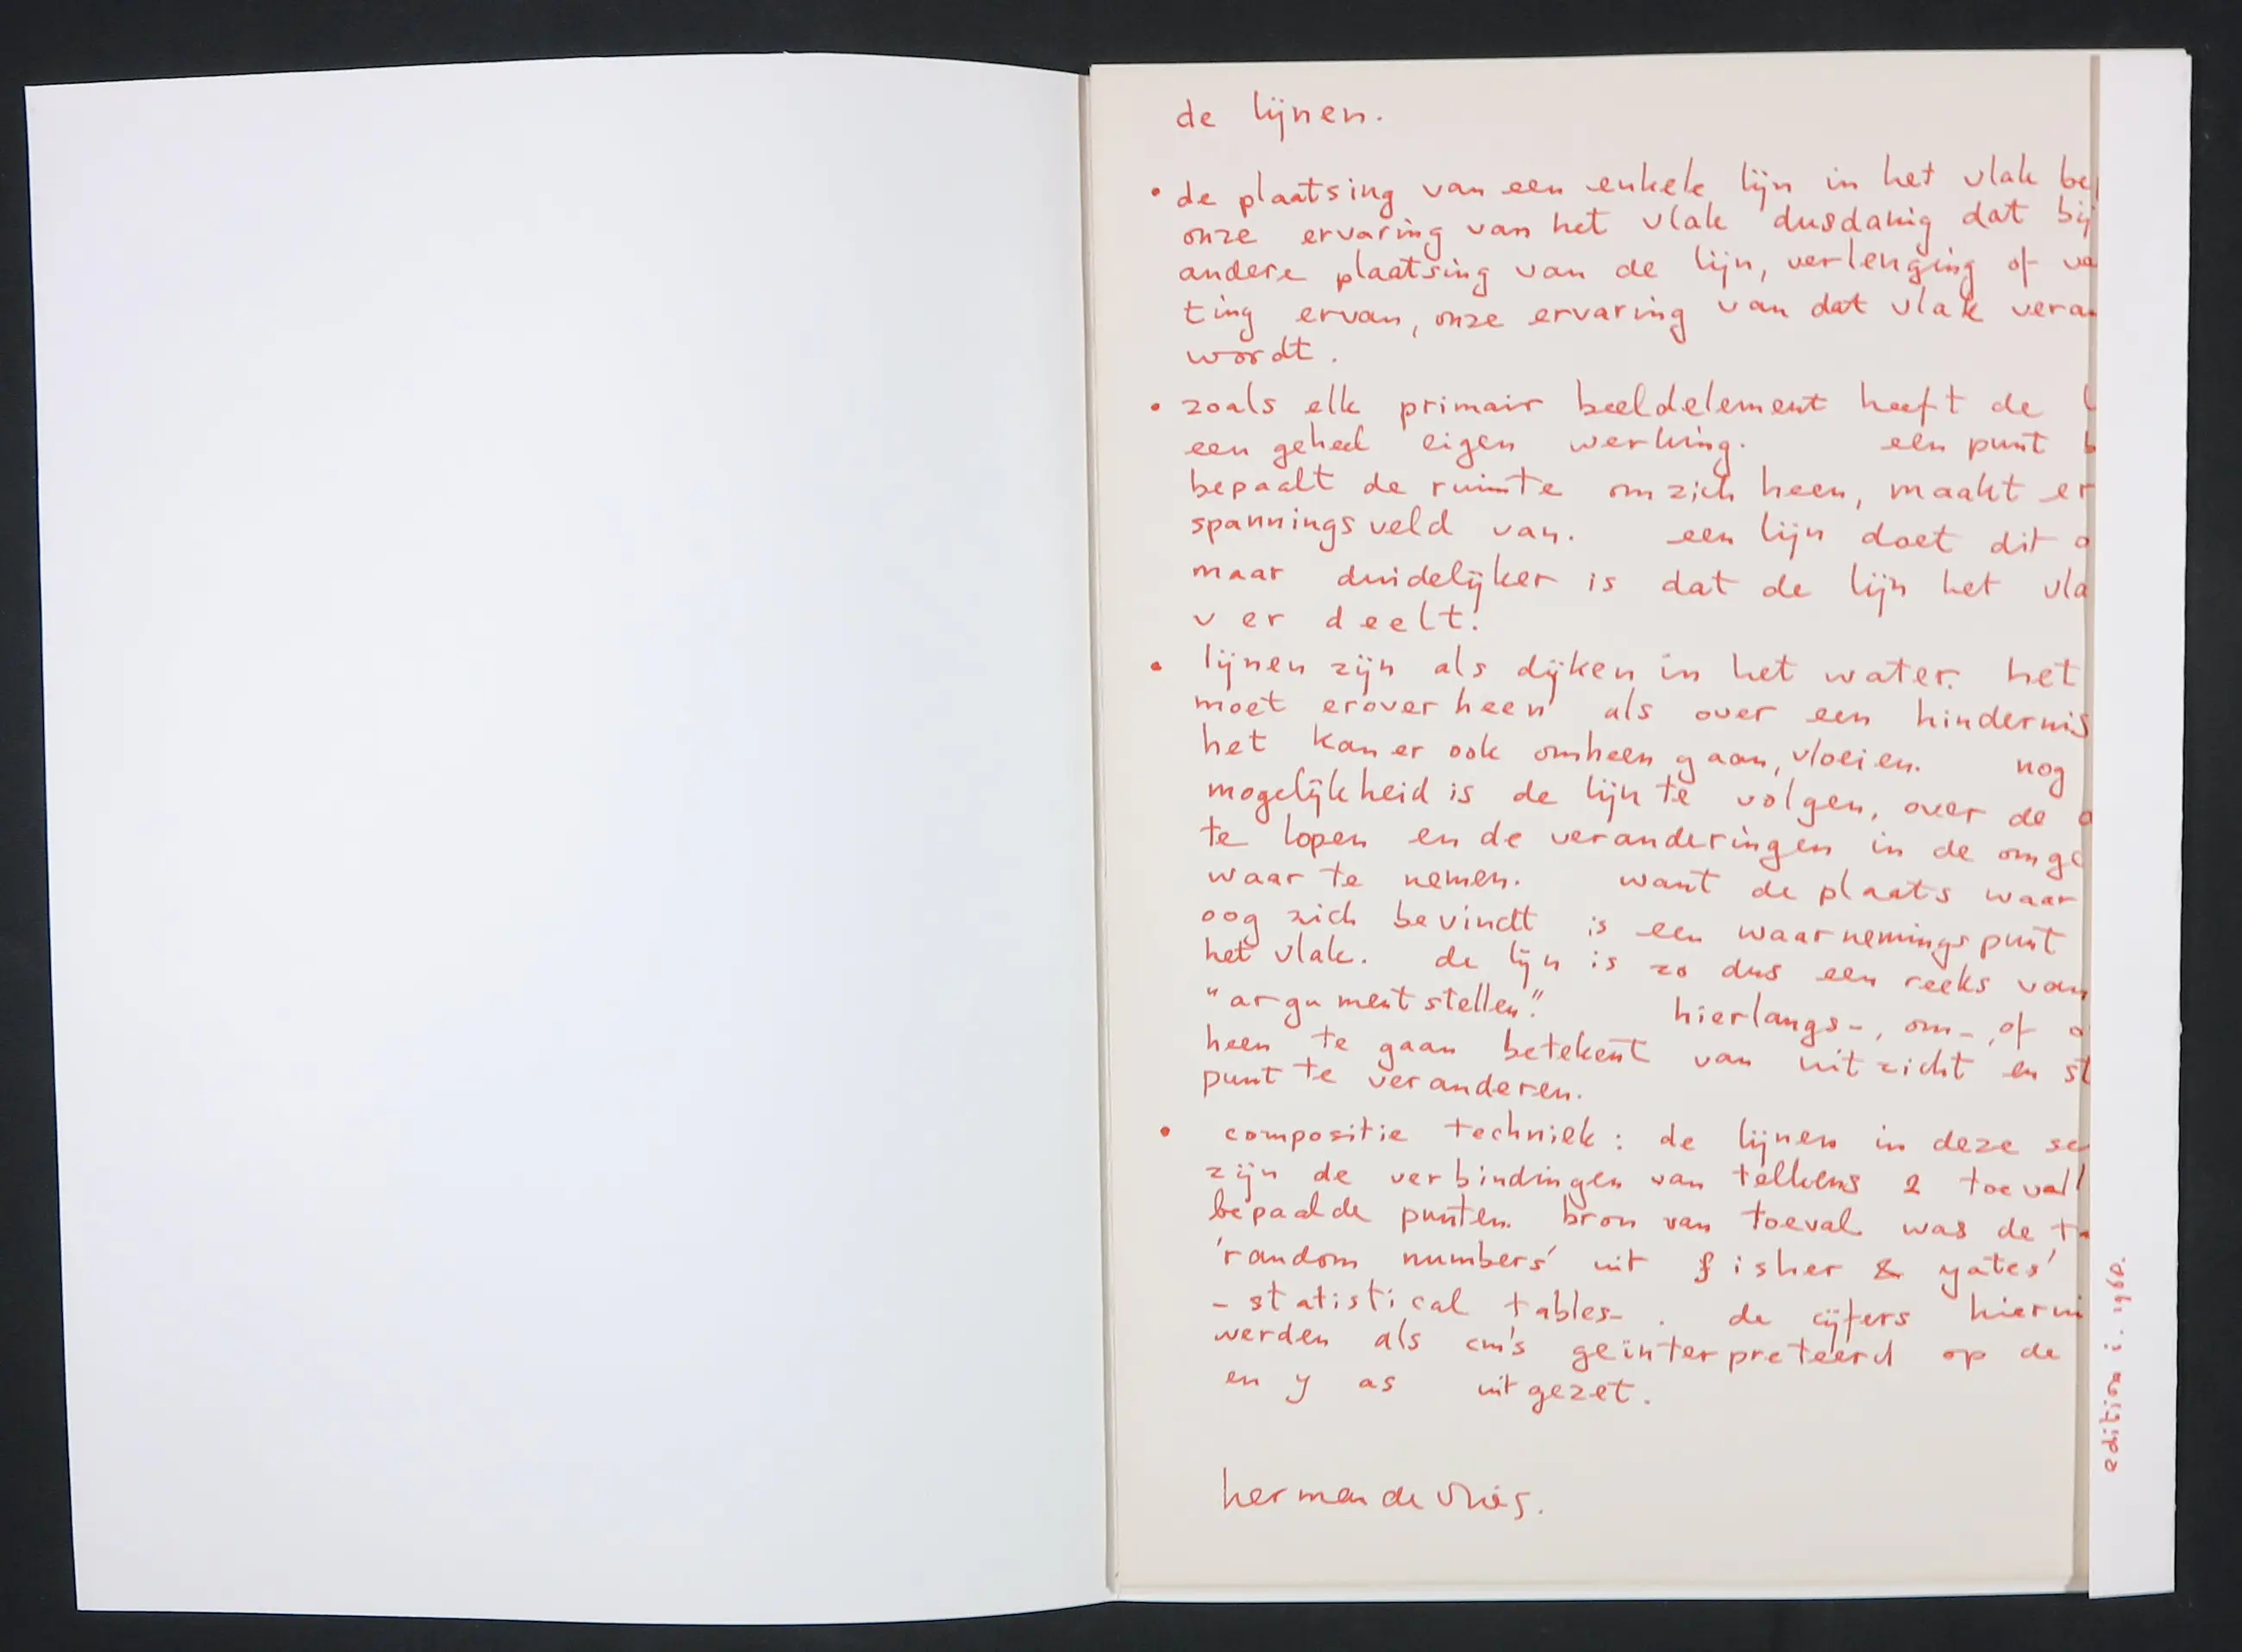 de lijnen.
• de plaatsing van een enkele lijn in het vlak
onze ervaring van het vlak dusdanig dat bij
andere plaatsing van de lijn, verlenging of
ting ervan, onze ervaring van dat vlak
wordt.
• zoals elk primair beeldelement heeft de
een geheel eigen werking. een punt
bepaalt de ruimte om zich heen, maakt er
spanningsveld van. een lijn doet dit
maar duidelijker is dat de lijn het
v er deelt!
• lijnen zijn als dijken in het water. het
moet eroverheen als over een hindernis
het kan er ook omheen gaan, vloeien. nog
mogelijkheid is de lijn te volgen, over de
te lopen en de veranderingen in de
waar te nemen. want de plaats waar
oog zich bevindt is een waarnemingspunt
het vlak. de lijn is zo dus een reeks van
"argument stellen". hierlangs-, om-, of
heen te gaan betekent van uitzicht en
punt te veranderen.
• compositie techniek: de lijnen in deze
zijn de verbindingen van telkens 2
bepaalde punten. bron van toeval was de
'random numbers' uit fisher & yates'
- statistical tables- . de cijfers
werden als cm's geïnterpreteerd op de
en y as uitgezet.
herman de vries.
edition i. 1960.